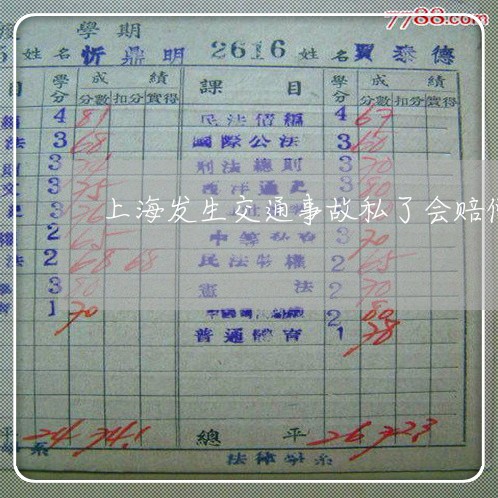 7788.com
學期
姓名 忻鼎明 2616 姓名 賈泰德
目 學分 成績 課目 學分 成績
分數 扣分 實得 分數 扣分 實得
4 81 民法債編 4 67
法 3 68 國際公法 3 60
3 刑法總則 3 70
文 3 75 西洋通史 3 80
3 76
上海发生交通事故私了会赔偿
2 65 3 70
法 2 68 68 民法物權 2 65
3 80 憲法 2 70
1 70 2 80
普通體育 1 78
平 24 74.1 總平 26 72.3
系 法律學系